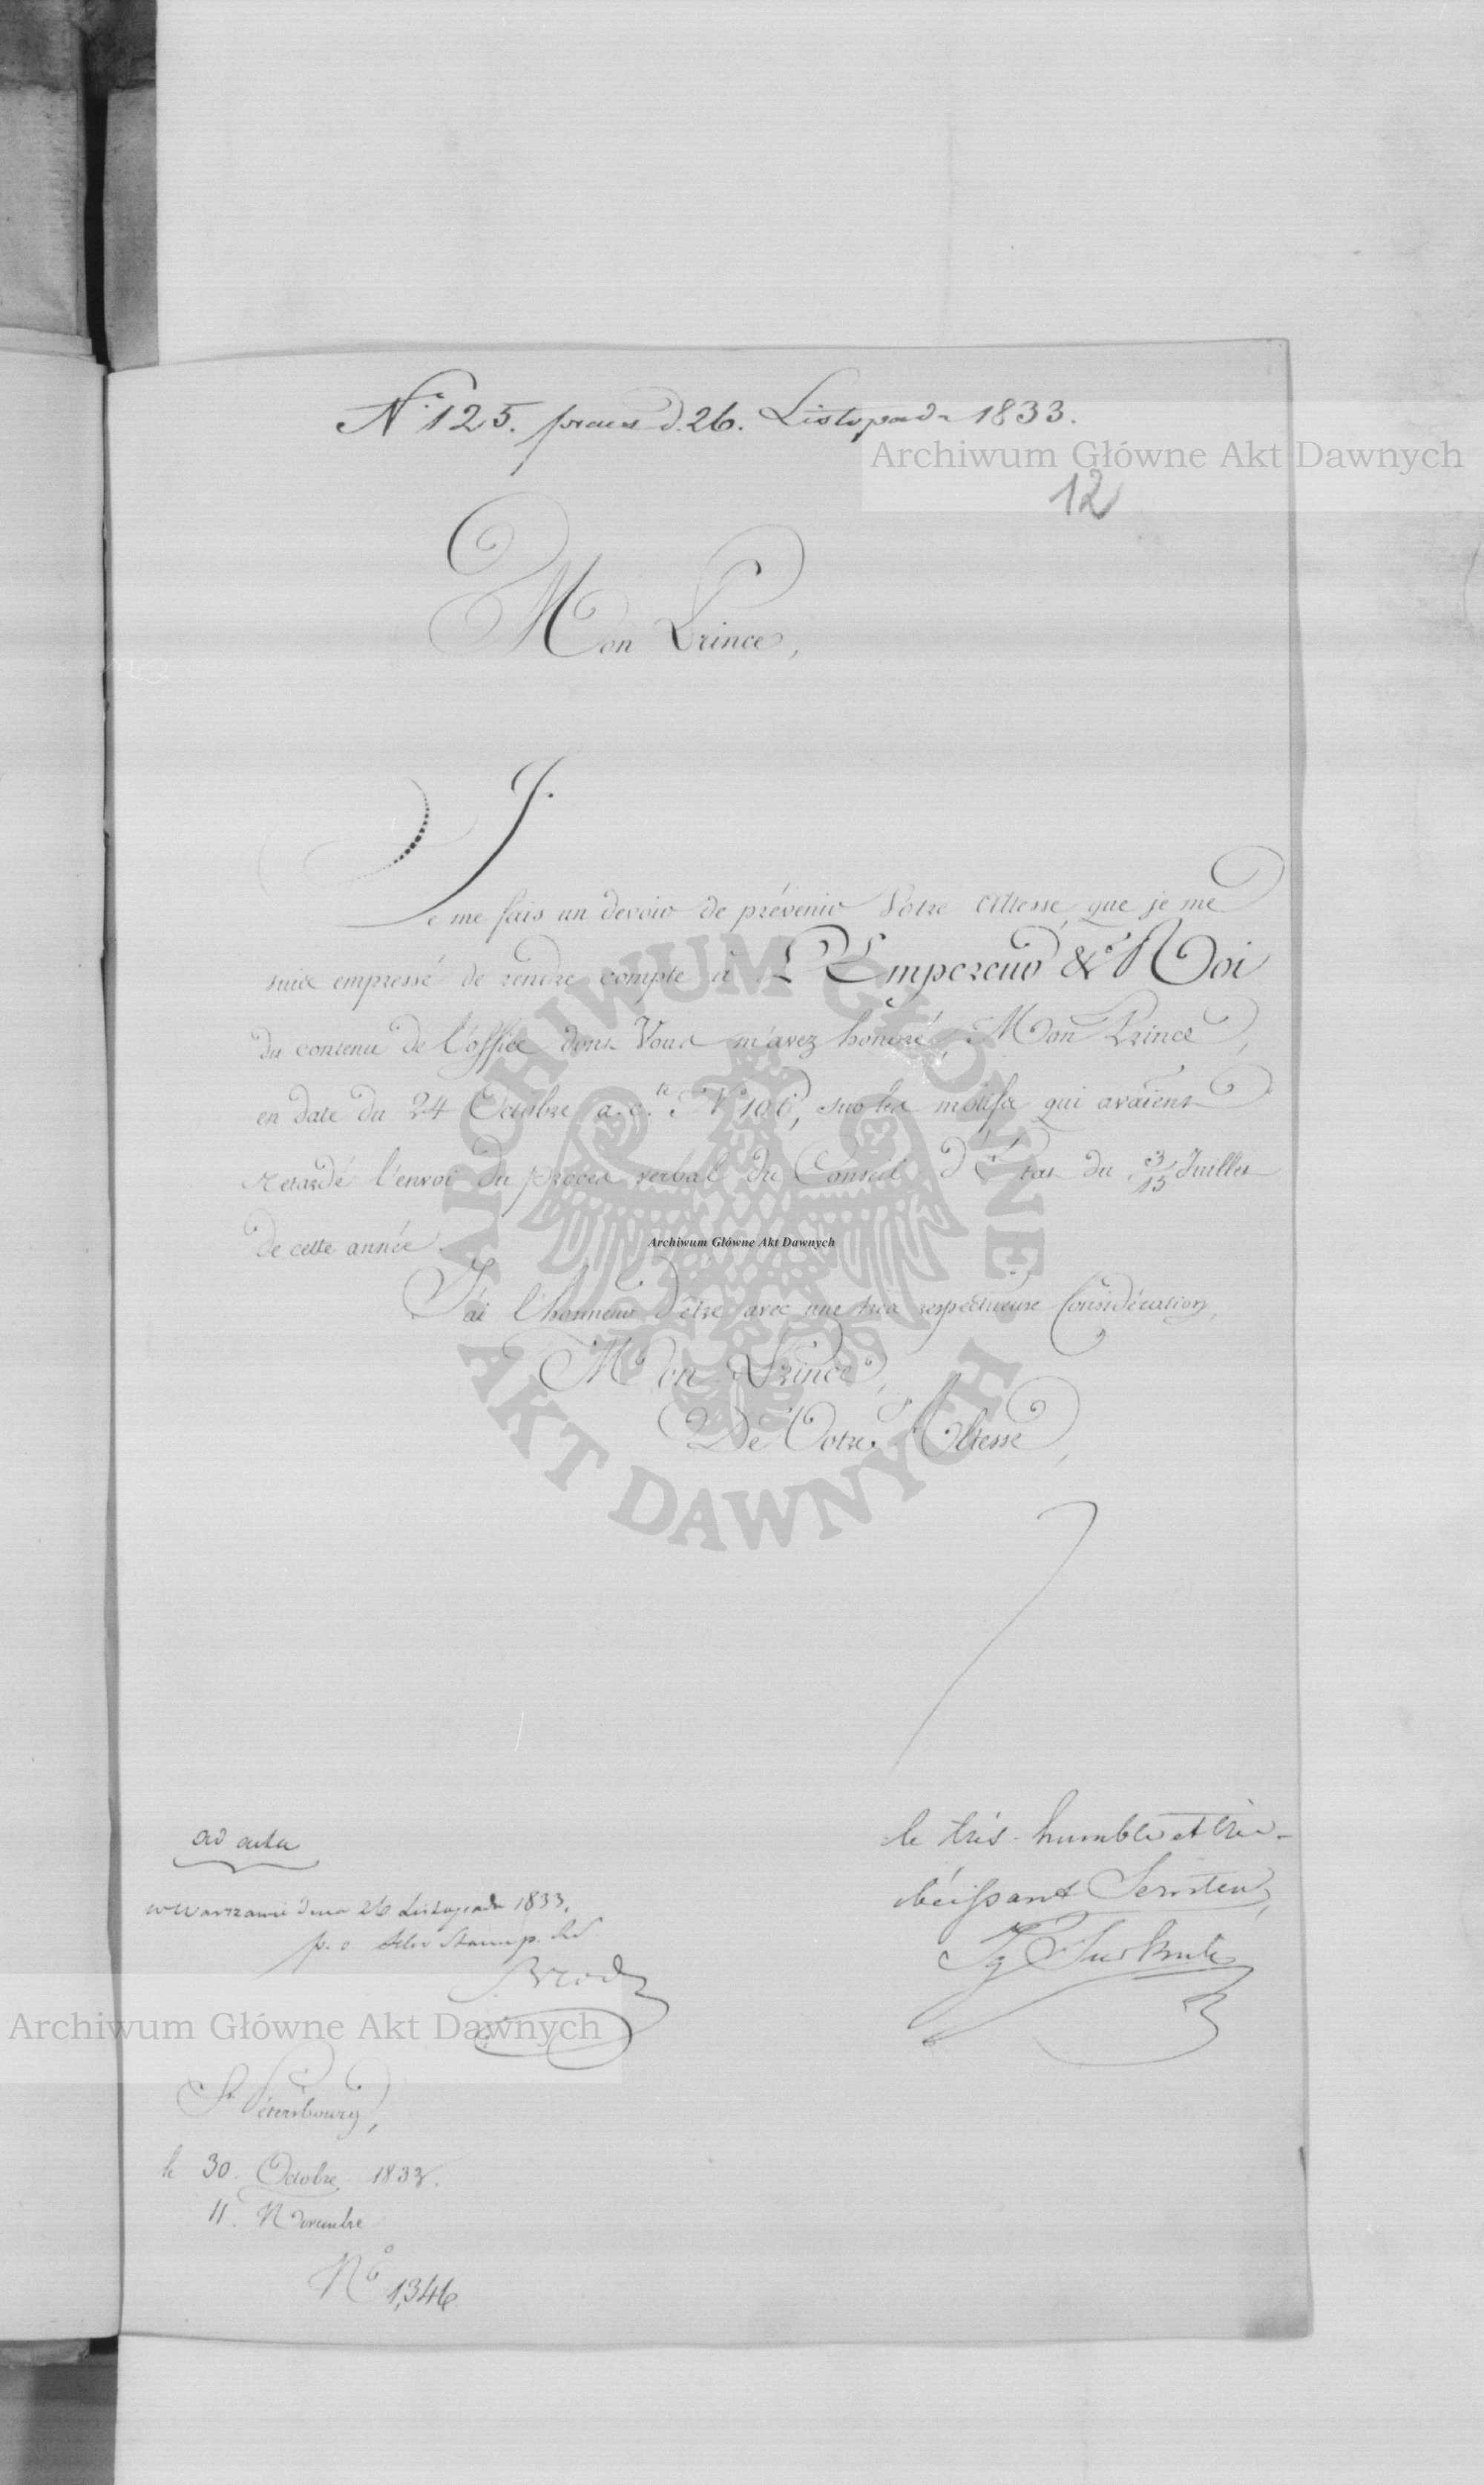 Nº 125. praes d. 26. Listopada 1833.
Archiwum Główne Akt Dawnych
12
Mon Prince,
Je me fais un devoir de prévenir Votre Altesse, que je me
suis empressé de rendre compte à L'Empereur & Roi
du contenu de l'office dont Vous m'avez honoré, Mon Prince,
en date du 24 Octobre a. c. Nº 106, sur les motifs qui avaient
retardé l'envoi du procès verbal du Conseil d'Etat du 3/15 Juillet
de cette année.
Archiwum Główne Akt Dawnych
J'ai l'honneur d'être avec une très respectueuse Considération,
Mon Prince,
De Votre Altesse,
ARCHIWUM GŁÓWNE AKT DAWNYCH
le très-humble et très-
obéissant Serviteur,
Ig Turkułł
ad acta
w Warszawie dnia 26 Listopada 1833.
p. o.
Archiwum Główne Akt Dawnych
St. Pétersbourg,
le 30. Octobre 1833.
11. Novembre
Nº 1,346